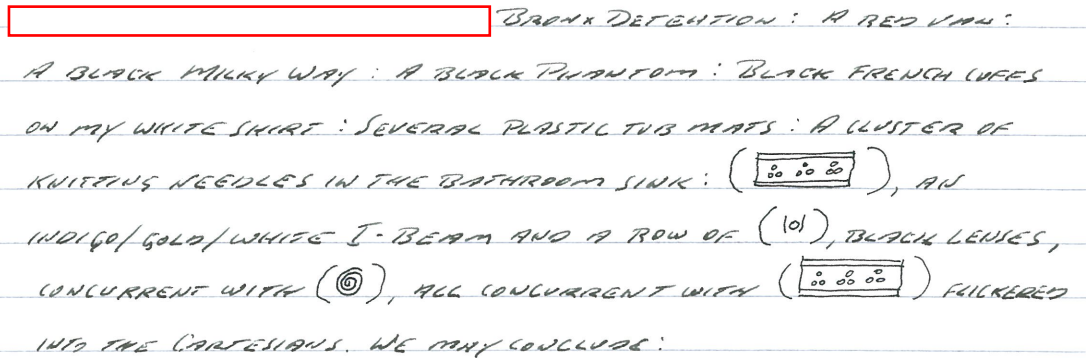 BRONX DETENTION: A RED VAN:
A BLACK MILKY WAY: A BLACK PHANTOM: BLACK FRENCH CUFFS
ON MY WHITE SHIRT: SEVERAL PLASTIC TUB MATS: A CLUSTER OF
KNITTING NEEDLES IN THE BATHROOM SINK: ( ), AN
INDIGO/GOLD/WHITE I-BEAM AND A ROW OF (101), BLACK LENSES,
CONCURRENT WITH ( ), ALL CONCURRENT WITH ( ) FLICKERED
INTO THE CARTESIANS. WE MAY CONCLUDE: